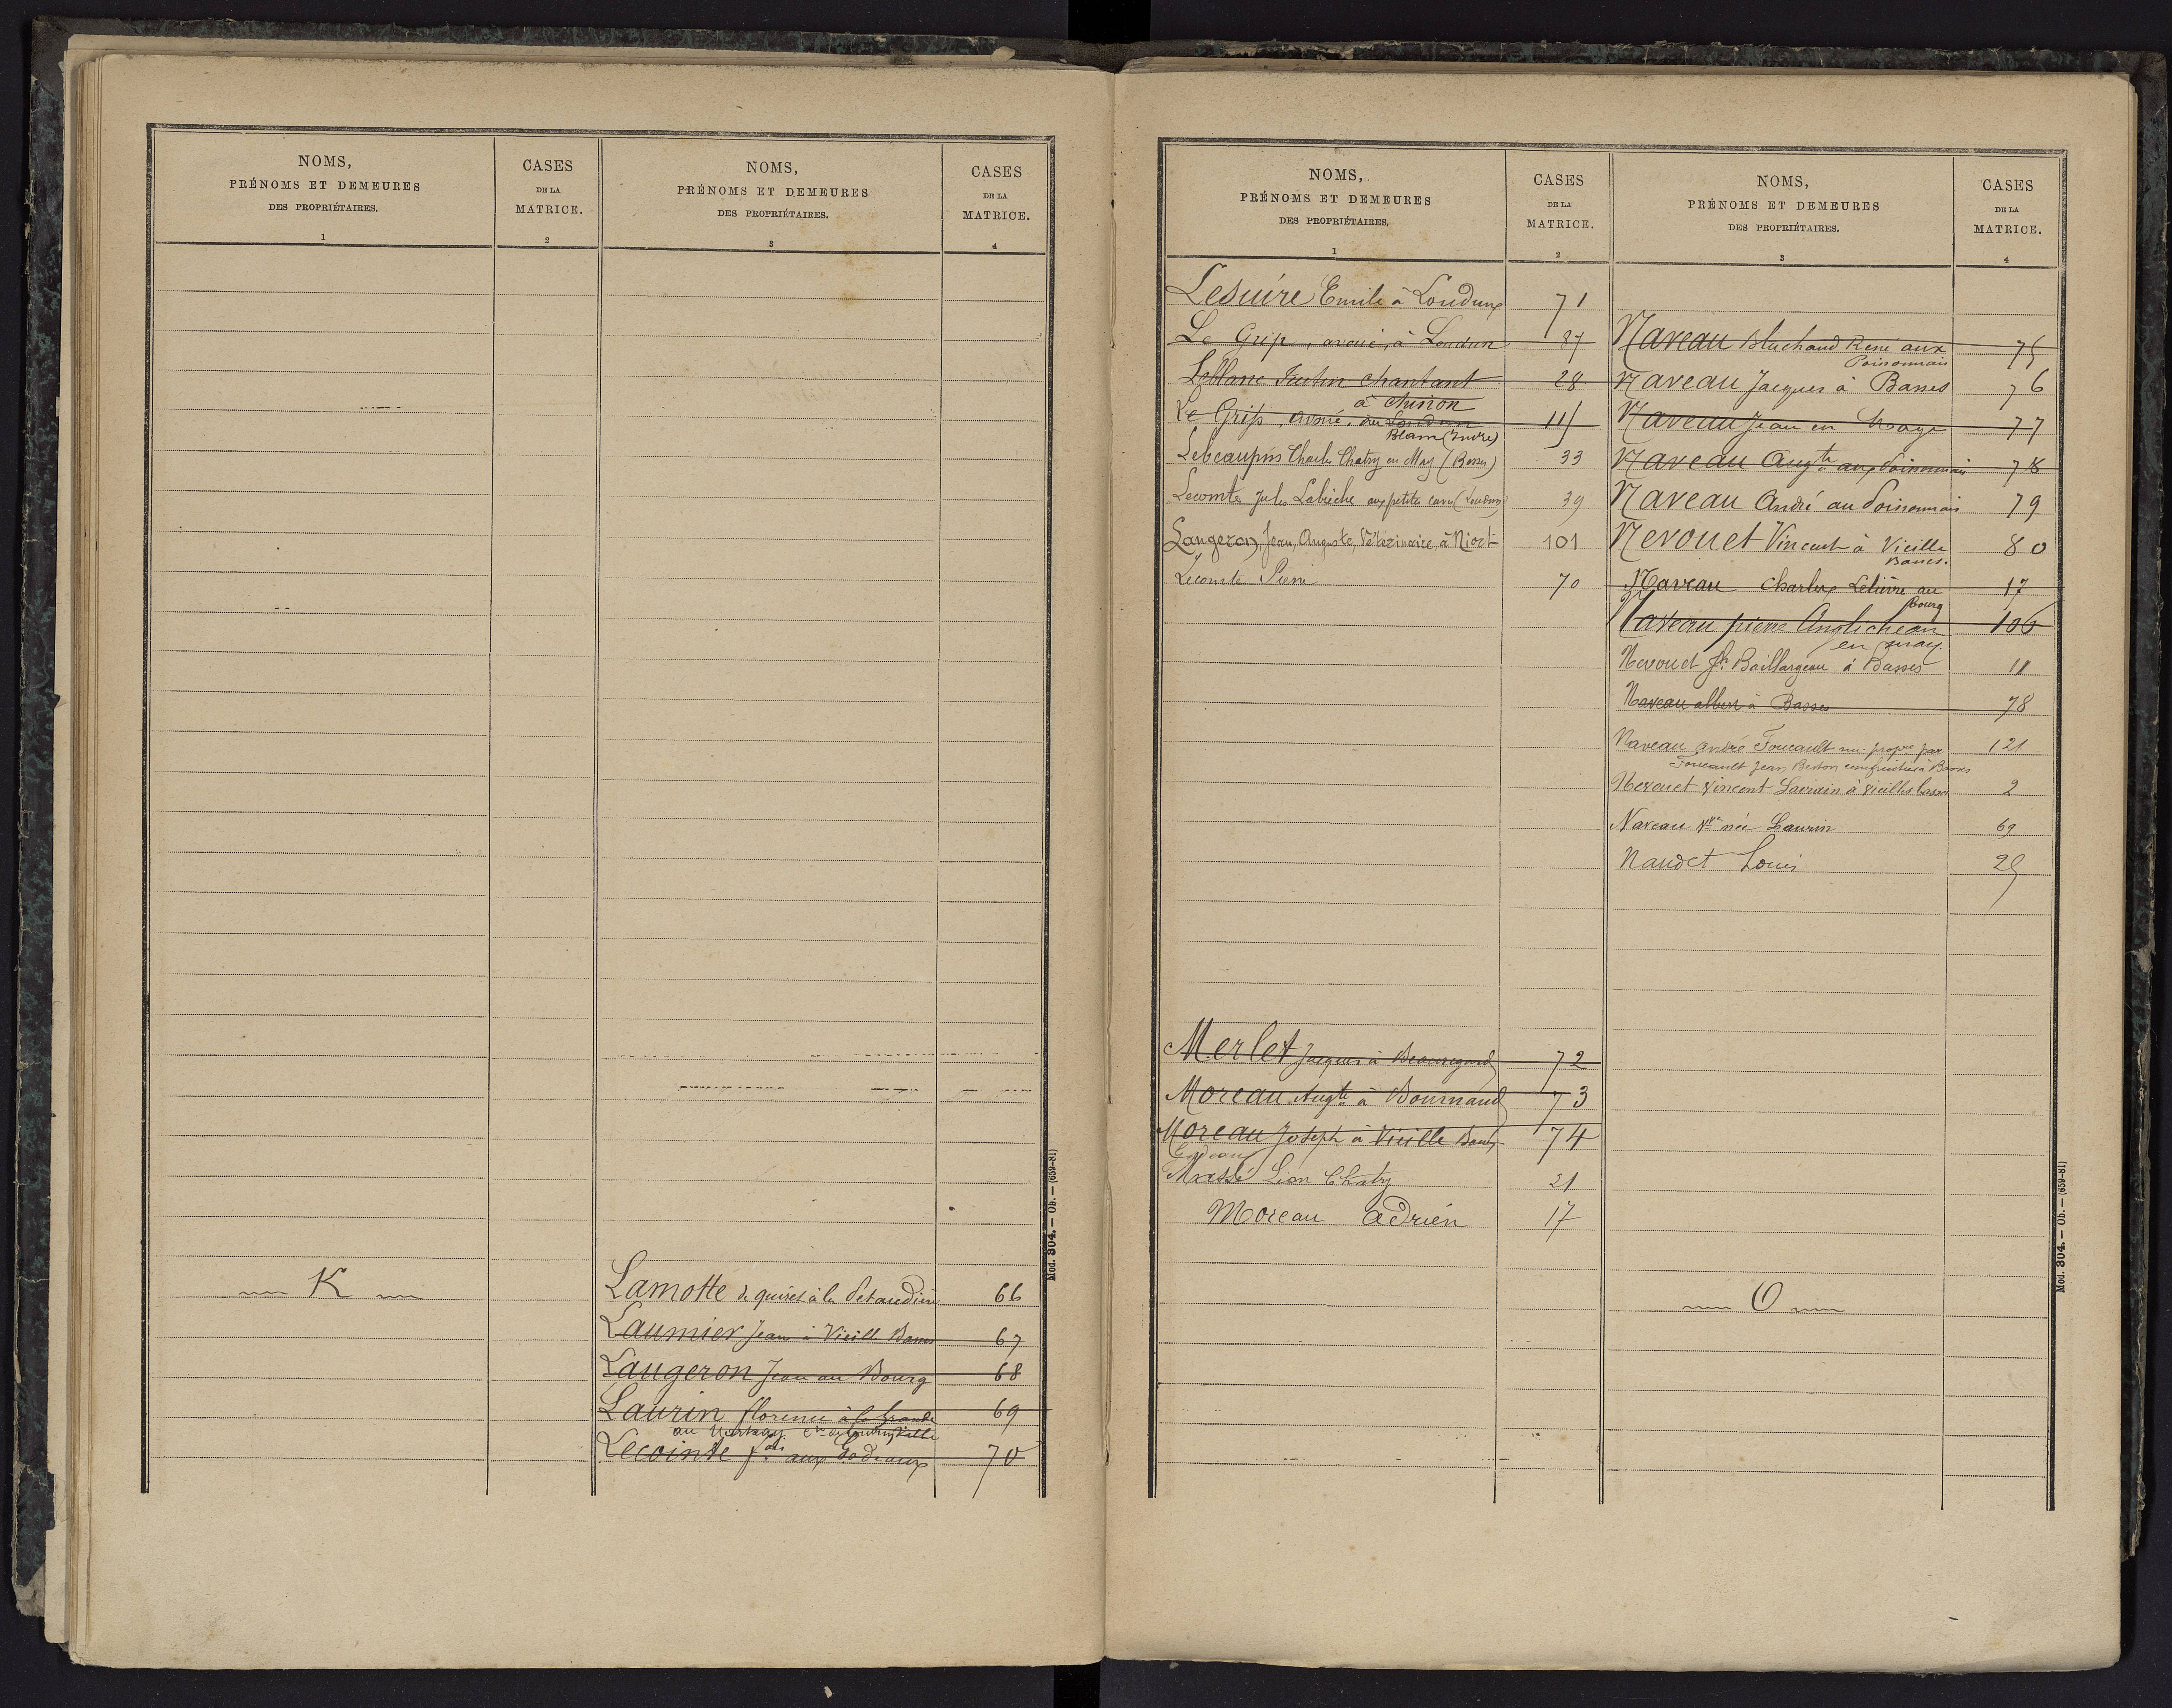 NOMS,
PRÉNOMS ET DEMEURES
DES PROPRIÉTAIRES.
1
CASES
DE LA
MATRICE.
2
NOMS,
PRÉNOMS ET DEMEURES
DES PROPRIÉTAIRES.
3
CASES
DE LA
MATRICE.
4
K
Lamotte de quiret à la 66
Laumier Jean à Vieill Basses 67
Laugeron Jean au Bourg 68
Laurin florence à la Grande 69
au
Lecointe aux Godeaux 70
Mod. 304. — Ob. — (659-81)
NOMS,
PRÉNOMS ET DEMEURES
DES PROPRIÉTAIRES.
1
CASES
DE LA
MATRICE.
2
Lesuire Emile à Loudun 71
Le Grip, avoué, à Loudun 87
Leblanc Justin chantant 28
à chinon
Le Grip, avoué, au Loudun 115
Blanc (Indre)
Lebeaupin Charles Chatry en May (Basses) 33
Lecomte Jules Labiche aux petites caves (Loudun) 39
Laugeron, Jean, Auguste, Vétérinaire, à Niort 101
Lecomte Pierre 70
Merlet Jacques à Beauregard 72
Moreau Augte à Bournand 73
Moreau Joseph à Vieille Basses 74
Godeau
Massé Léon Chatry 21
Moreau Adrien 17
NOMS,
PRÉNOMS ET DEMEURES
DES PROPRIÉTAIRES.
3
CASES
DE LA
MATRICE.
4
Naveau Bluchaud René aux 75
Poissonnais
Naveau Jacques à Basses 76
Naveau Jean en 77
Naveau Augte aux Poissonnais 78
Naveau André au Poissonnais 79
Nevouet Vincent à Vieille 80
Basses.
Naveau Charles Lelièvre au 17
bourg
Naveau pierre Anglicheau 106
en may
Nevouet Baillargeau à Basses 11
Naveau albert à Basses 78
Naveau André Foucault nu-propre par 121
Foucault Jean Berton usufruitier à Basses
Nevouet Vincent Laurain à vieilles basses 2
Naveau Vve née Laurin 69
Naudet Louis 25
O
Mod. 304. — Ob. — (659-81)